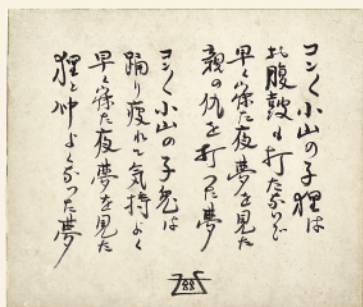 コン〱小山の子狸は
お腹鼓も打たないで
早く寐た夜夢を見た
親の仇を打つた夢
コン〱小山の子兎は
踊り疲れて気持よく
早く寐た夜夢を見た
狸と仲よくなつた夢